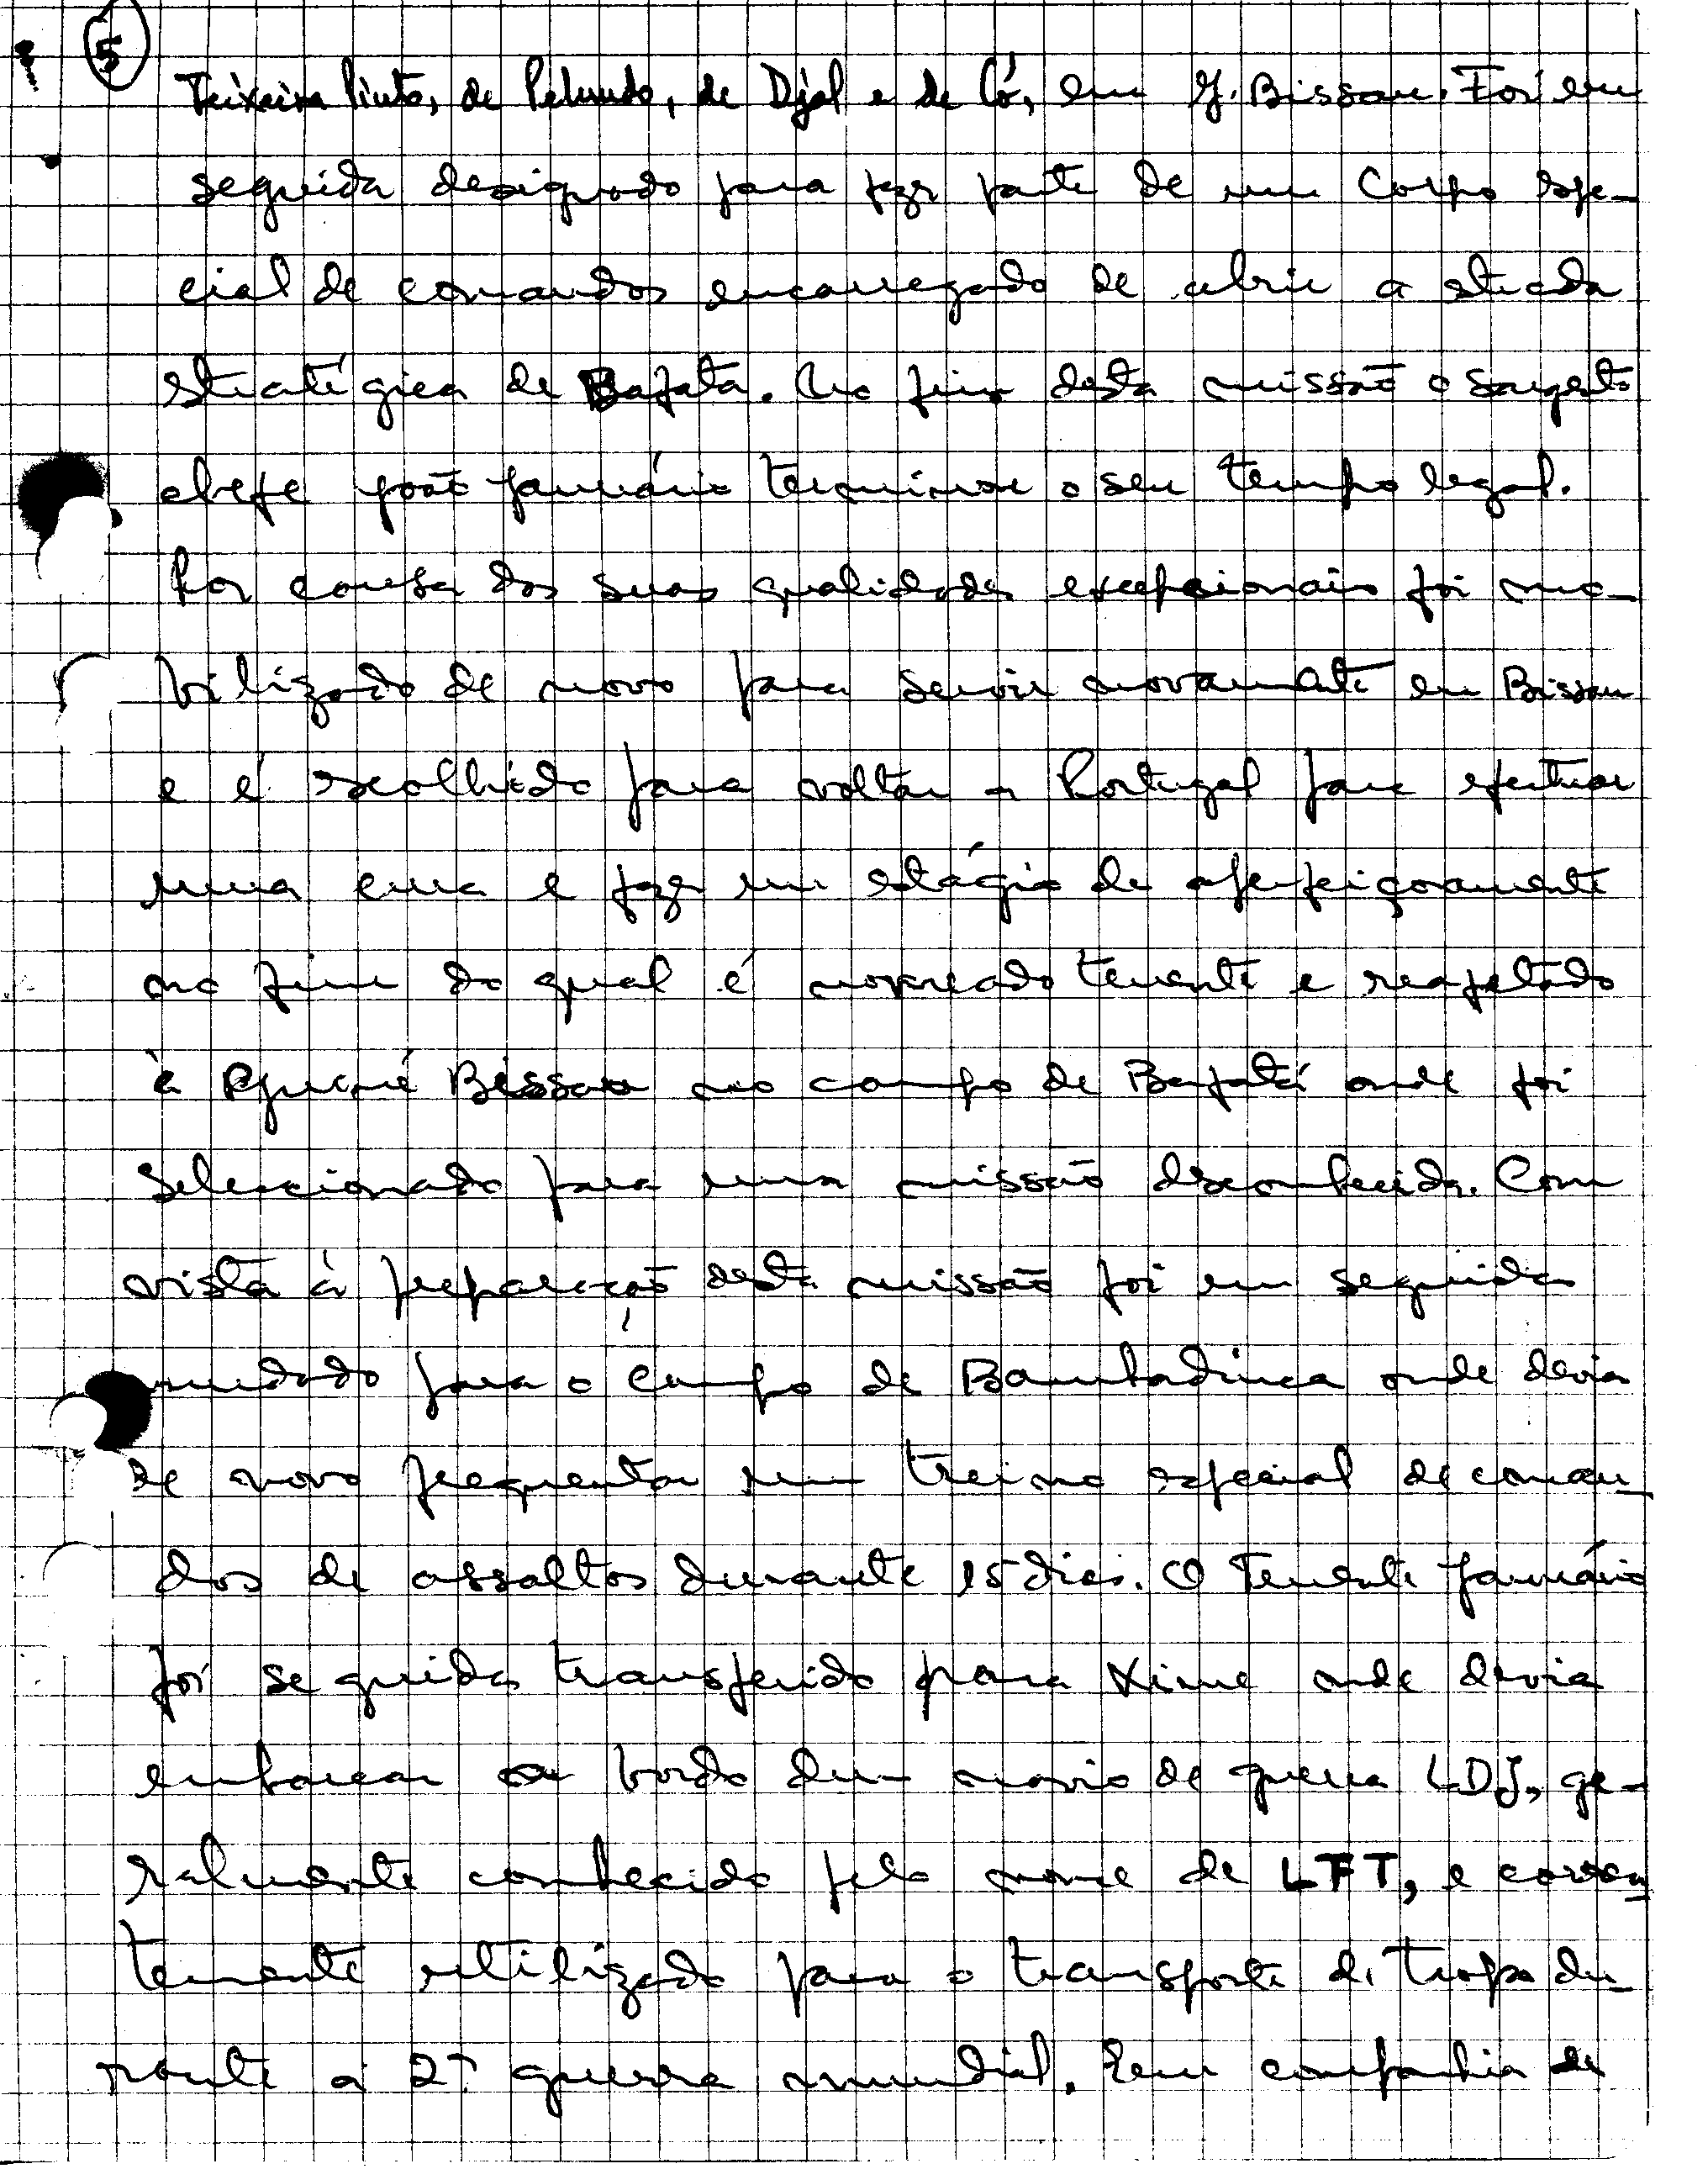 5
Teixeira Pinto, de Pelundo, de Djol e de Có, em G. Bissau. Foi em
seguida designado para fazer parte de um Corpo espe-
cial de comandos encarregado de abrir a estrada
estratégica de Bafata. No fim desta missão o sargento
chefe João Januário terminou o seu tempo legal.
Por causa das suas qualidades excepcionais foi mo-
bilizado de novo para servir novamente em Bissau
e é escolhido para voltar a Portugal para efectuar
uma cura e fazer um estágio de aperfeiçoamento
no fim do qual é nomeado tenente e reafetado
à Guiné Bissau no campo de Bafatá onde foi
seleccionado para uma missão desconhecida. Com
vista à preparação desta missão foi em seguida
mudado para o campo de Bambadinca onde devia
de novo frequentar um treino especial de coman-
dos de assaltos durante 15 dias. O Tenente Januário
foi seguida transferido para Xime onde devia
embarcar a bordo dum navio de guerra LDG, ge-
ralmente conhecido pelo nome de LFT, e corren-
temente utilizado para o transporte de tropa du-
rante a 2ª guerra mundial. Em companhia de